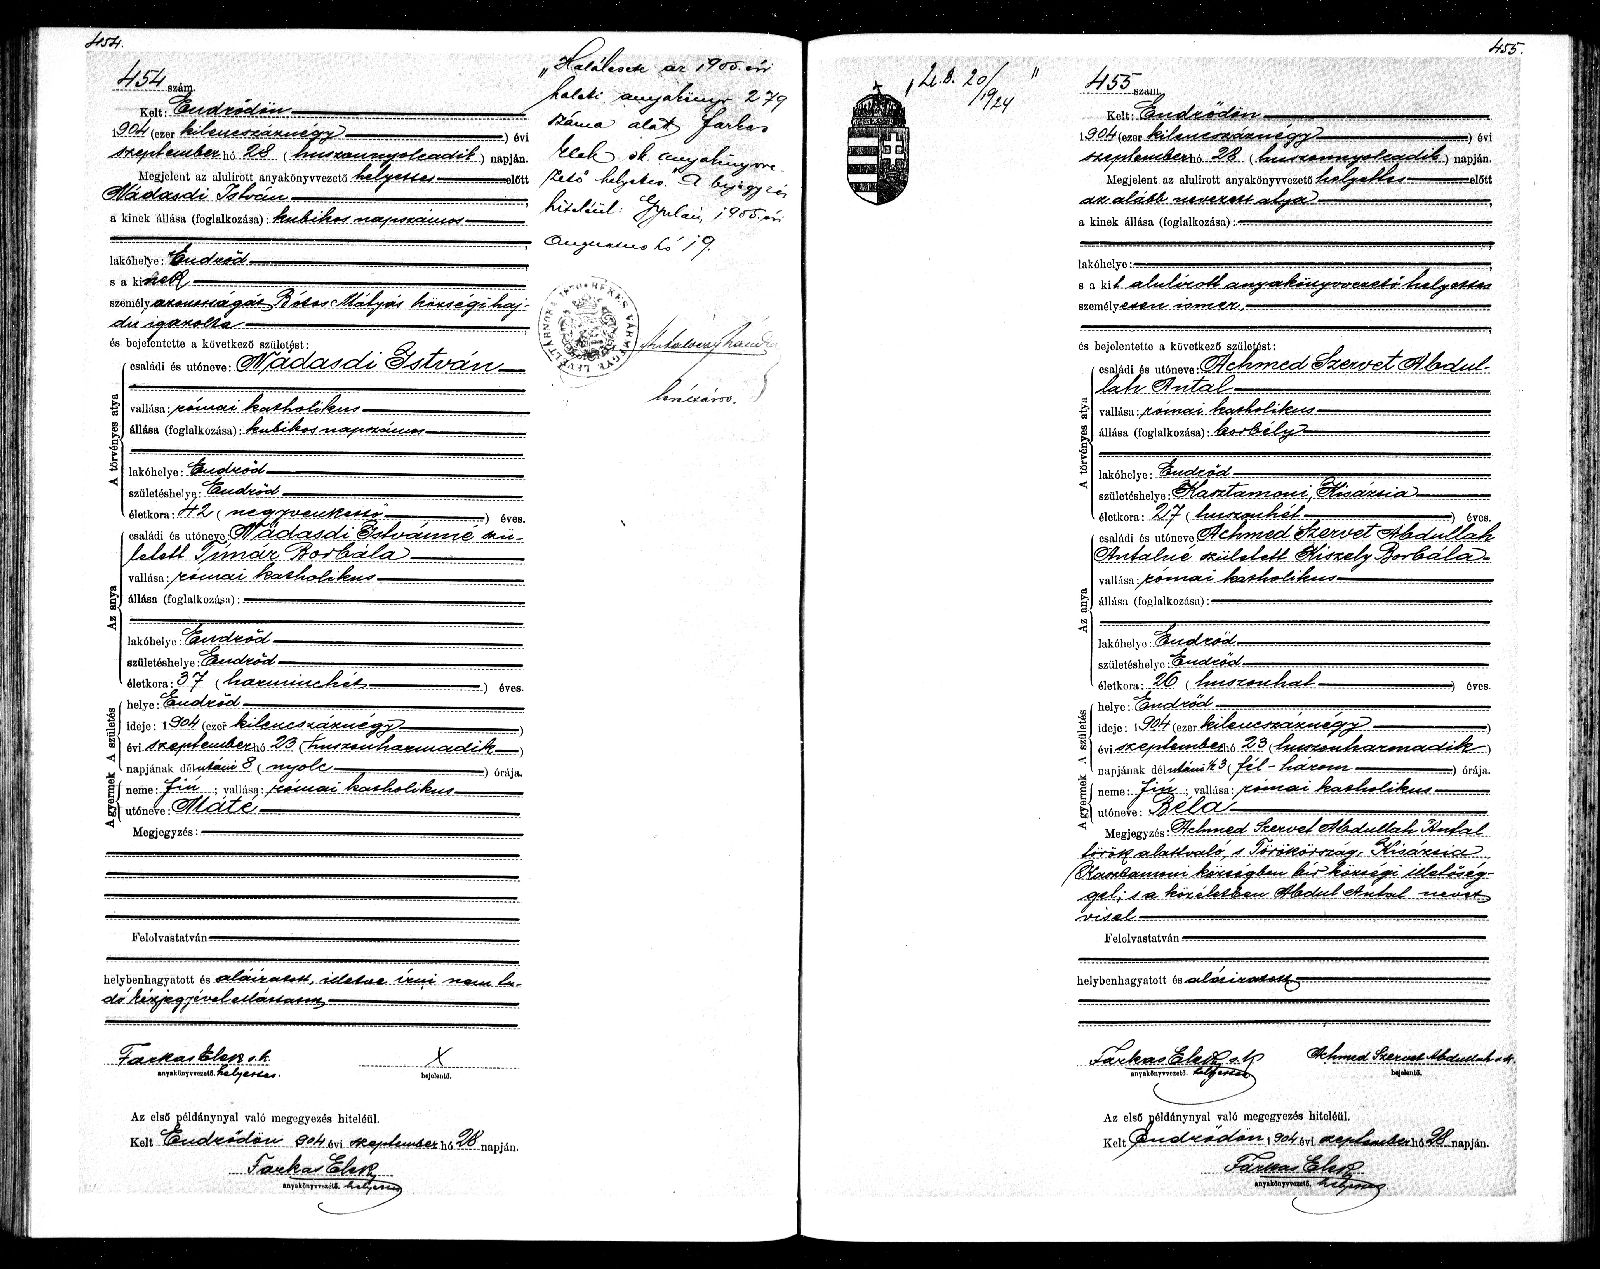 454.
454 szám.
Kelt: Endrődön
1904 (ezer kilencszáznégy) évi
szeptember hó 28 (huszonnyolcadik) napján.
Megjelent az alulirott anyakönyvvezető helyettes előtt
Nádasdi István
a kinek állása (foglalkozása): kubikos napszámos
lakóhelye: Endrőd
s a kinek
személyazonosságát Mátyás községi haj-
du igazolta
és bejelentette a következő születést:
A törvényes atya
családi és utóneve: Nádasdi István
vallása: római katholikus
állása (foglalkozása): kubikos napszámos
lakóhelye: Endrőd
születéshelye: Endrőd
életkora: 42 (negyvenkettő) éves.
Az anya
családi és utóneve: Nádasdi Istvánné szü-
letett Tímár Borbála
vallása: római katholikus
állása (foglalkozása):
lakóhelye: Endrőd
születéshelye: Endrőd
életkora: 37 (harminchét) éves.
A születés
helye: Endrőd
ideje: 1904 (ezer kilencszáznégy)
évi szeptember hó 23 (huszonharmadik)
napjának délutáni 8 (nyolc) órája.
A gyermek
neme: fiú; vallása: római katholikus
utóneve: Máté
Megjegyzés:
Felolvastatván
helybenhagyatott és aláiratott, illetve írni nem tu-
dó kézjegyével elláttatott
Farkas Elek s.k. X
anyakönyvvezető helyettes. bejelentő.
Az első példánynyal való megegyezés hiteléül.
Kelt Endrődön 1904 évi szeptember hó 28 napján.
Farkas Elek
anyakönyvvezető helyettes
„Halálesete az 1905. évi
halotti anyakönyv 279
száma alatt Farkas
Elek sk. anyakönyvve-
zető helyettes." A bejegyzés
hiteléül: Gyulán, 1905. évi
augusztus hó 19.
BÉKÉS VÁRMEGYE LEVÉLTÁRNOKA
455.
„Lt. B. 20/1924"
455 szám.
Kelt: Endrődön
1904 (ezer kilencszáznégy) évi
szeptember hó 28 (huszonnyolcadik) napján.
Megjelent az alulirott anyakönyvvezető helyettes előtt
az alább nevezett atya
a kinek állása (foglalkozása):
lakóhelye:
s a kit alulírott anyakönyvvezető helyettes
személyesen ismer,
és bejelentette a következő születést:
A törvényes atya
családi és utóneve: Achmed Szervet Abdul-
lah Antal
vallása: római katholikus
állása (foglalkozása): borbély
lakóhelye: Endrőd
születéshelye: Kasztamoni, Kisázsia
életkora: 27 (huszonhét) éves.
Az anya
családi és utóneve Achmed Szervet Abdullah
Antalné született Hiszely Borbála
vallása: római katholikus
állása (foglalkozása):
lakóhelye: Endrőd
születéshelye: Endrőd
életkora: 26 (huszonhat) éves.
A születés
helye: Endrőd
ideje: 1904 (ezer kilencszáznégy)
évi szeptember hó 23 (huszonharmadik)
napjának délutáni ½3 (fél-három) órája.
A gyermek
neme: fiú; vallása: római katholikus
utóneve: Béla
Megjegyzés: Achmed Szervet Abdullah Antal
török alattvaló, s Törökország, Kisázsia
Kasztamoni községben bír községi illetőség-
gel; s a közéletben Abdul Antal nevet
visel
Felolvastatván
helybenhagyatott és aláiratott
Farkas Elek s.k. Achmed Szervet Abdullah s.k.
anyakönyvvezető. helyettes bejelentő.
Az első példánynyal való megegyezés hiteléül.
Kelt Endrődön 1904 évi szeptember hó 28 napján.
Farkas Elek
anyakönyvvezető. helyettes